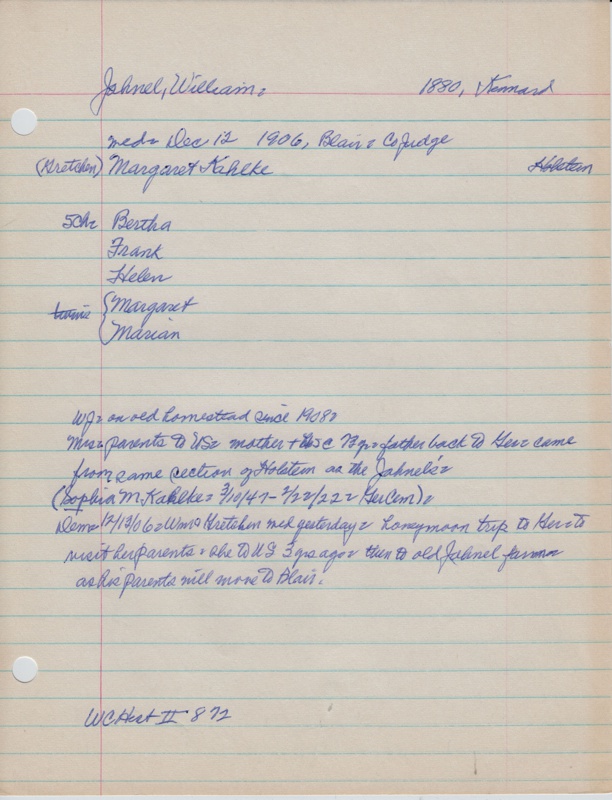 Jahnel, William. 1880, Kennard
med. Dec 12 1906, Blair. Co Judge
(Gretchen) Margaret Kahlke Holstein
5Ch. Bertha
Frank
Helen
twins {Margaret
Marian
WJ. on old homestead since 1908.
Mrs. parents to US. mother + father back to Ger. came
from same section of Holstein as the Jahnel's.
(Sophia M. Kahlke. 3/10/47 - 2/22/22. GerCem).
Dem. 12/13/06. Wm + Gretchen med yesterday. honeymoon trip to Ger. to
visit her parents. she to US 3 yrs ago. then to old Jahnel farm.
as his parents will move to Blair.
WCHist II 872